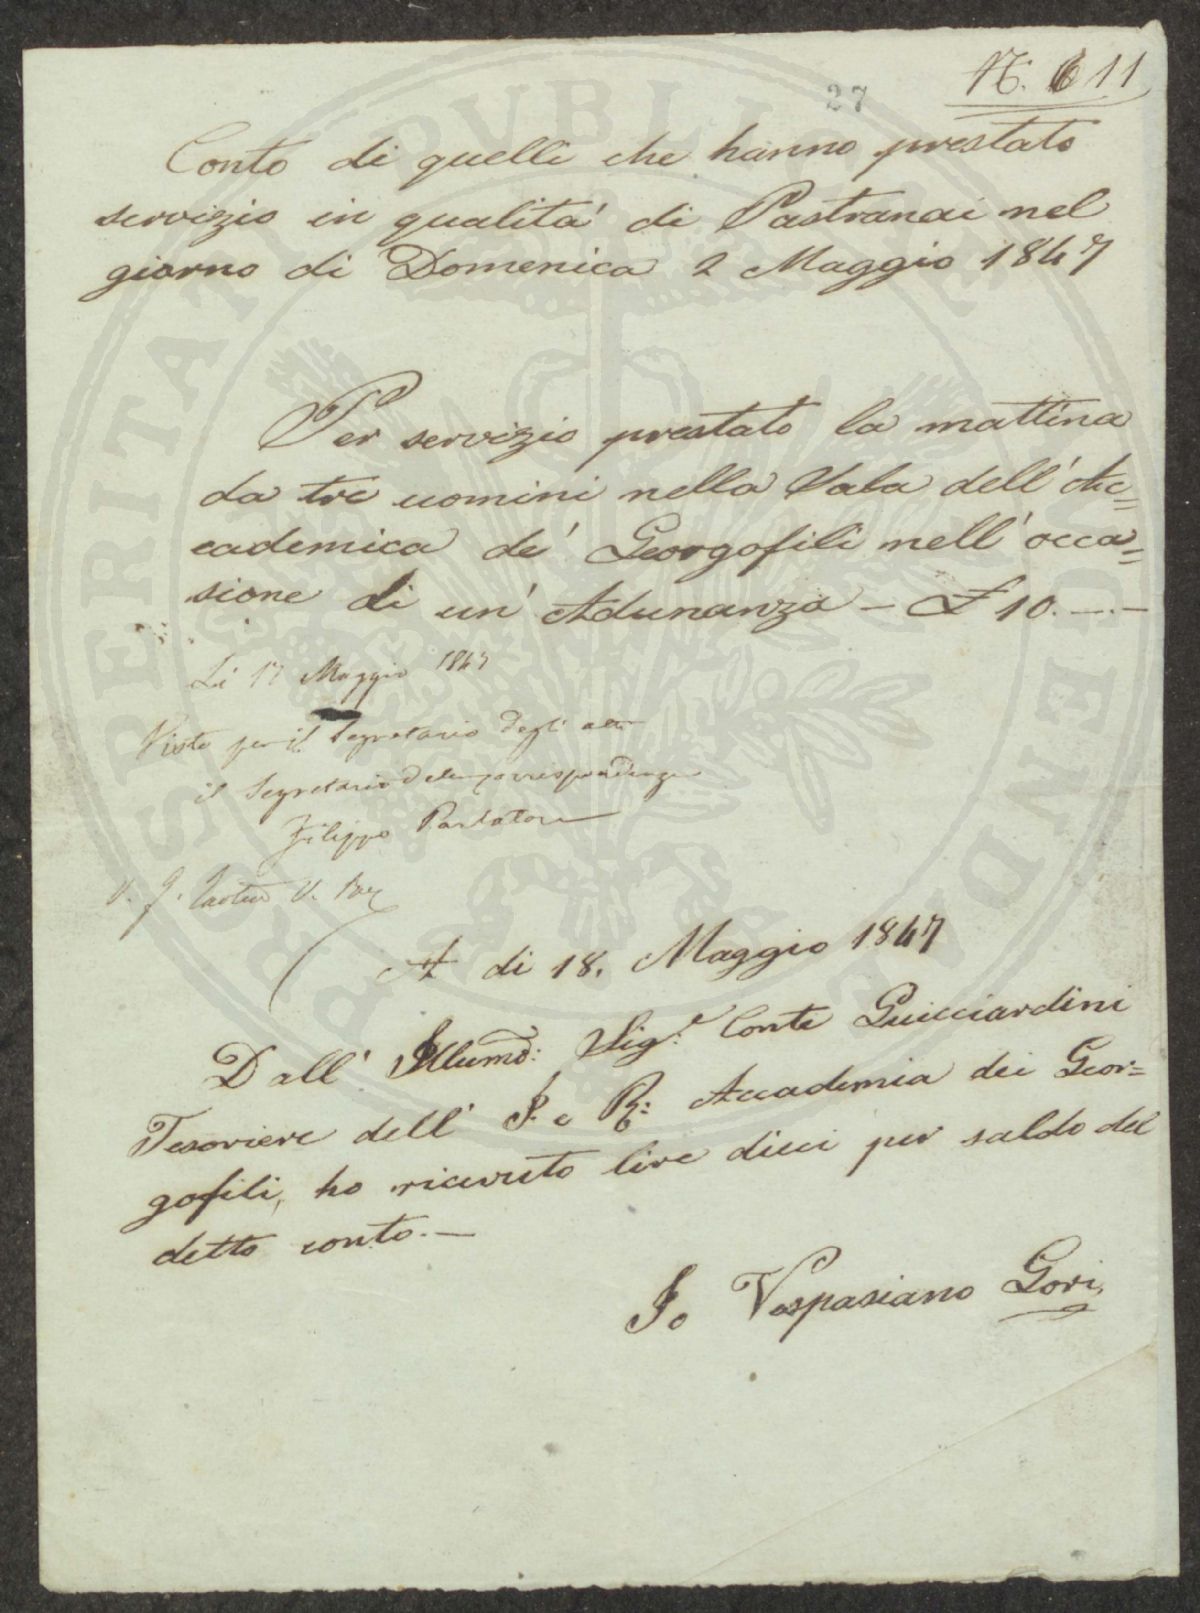 27
N. 611
Conto di quelli che hanno prestato
servizio in qualità di Pastranai nel
giorno di Domenica 2 Maggio 1847
Per servizio prestato la mattina
da tre uomini nella Sala dell' Ac=
cademica de' Georgofili nell' occa=
sione di un' Adunanza — £ 10. —.—
Li 17 Maggio 1847
Visto per il Segretario degli atti
il Segretario delle corrispondenze
Filippo Parlatore
V. V.
A di 18. Maggio 1847
Dall' Illumo: Sig.e Conte Guicciardini
Tesoriere dell' I. e R: Accademia dei Geor=
gofili, ho ricevuto lire dieci per saldo del
detto conto. —
Io Vespasiano Gori
PROSPERITATI PVBLICAE AVGENDAE